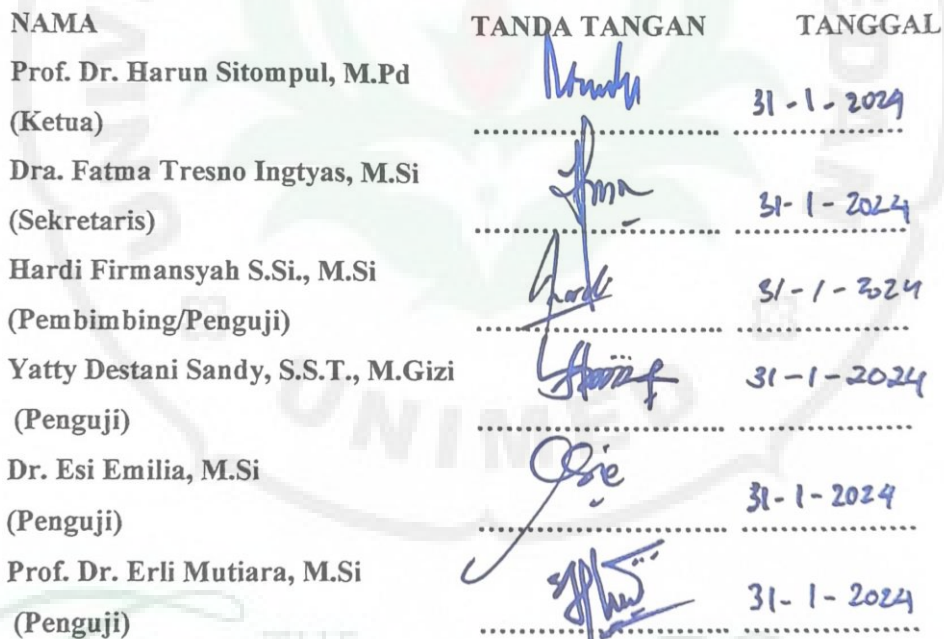 NAMA TANDA TANGAN TANGGAL
Prof. Dr. Harun Sitompul, M.Pd
(Ketua) 31 - 1 - 2024
Dra. Fatma Tresno Ingtyas, M.Si
(Sekretaris) 31 - 1 - 2024
Hardi Firmansyah S.Si., M.Si
(Pembimbing/Penguji) 31 - 1 - 2024
Yatty Destani Sandy, S.S.T., M.Gizi 31 - 1 - 2024
(Penguji)
Dr. Esi Emilia, M.Si
(Penguji) 31 - 1 - 2024
Prof. Dr. Erli Mutiara, M.Si
(Penguji) 31 - 1 - 2024
UNIMED